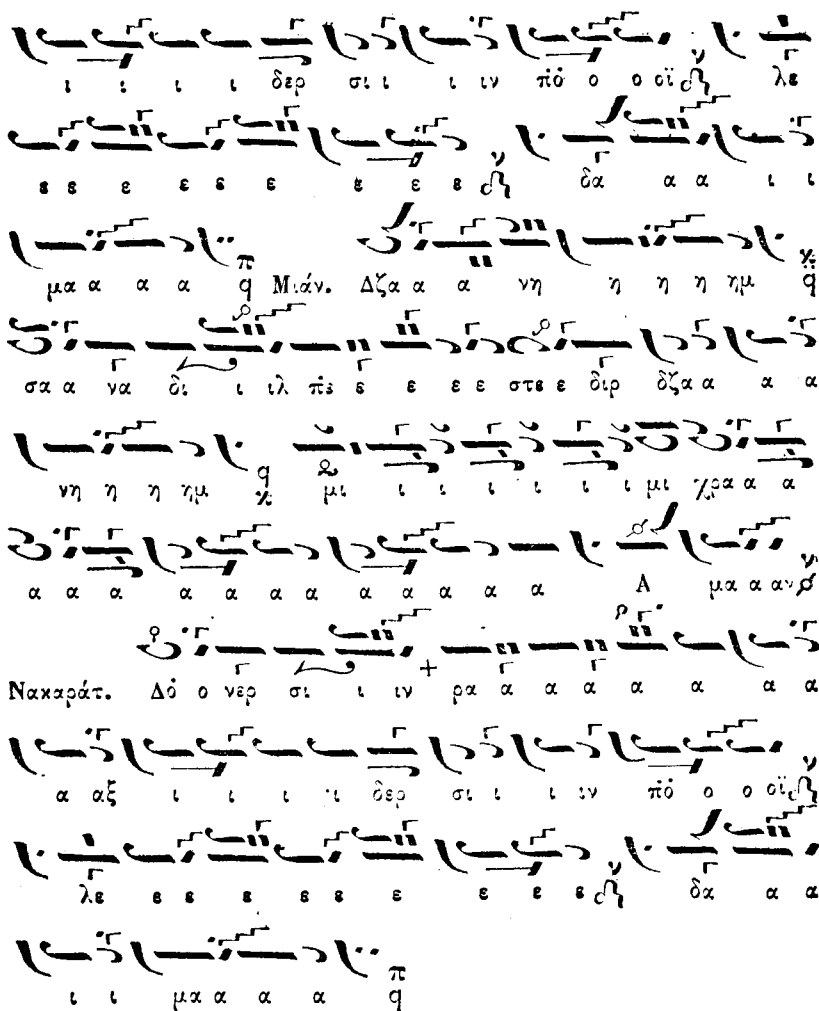 ι ι ι ι δερ σι ι ι ιν πὄ ο ο οϊ ν λε
ε ε ε ε ε ε ε ε ε ν δα α α ι ι
μα α α α π q Μιάν. Δζα α α νη η η η ημ κ q
σα α να δι ι ιλ πε ε ε ε ε στε ε διρ δζα α α α
νη η η ημ q κ μι ι ι ι ι ι ι μι χρα α α
α α α α α α α α α α α Α μα α αν ν
Νακαράτ. Δὄ ο νερ σι ι ιν ρα α α α α α α α
α αξ ι ι ι ι δερ σι ι ι ιν πὄ ο ο οϊ ν
λε ε ε ε ε ε ε ε ε ν δα α α
ι ι μα α α α π q